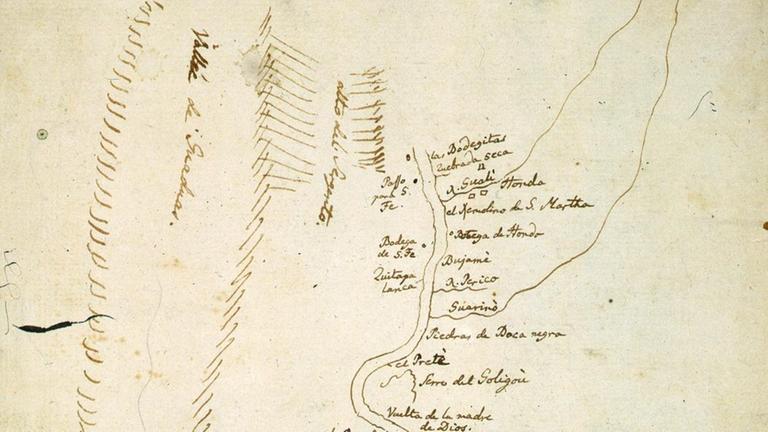 Valle de Guaduas.
alto del Sargento.
las Bodegitas
Quebrada seca
R. Guali
Honda
Passo
para S.
Fe.
el Remolino de S. Martha
Botega de Hondo
Bodega
de S. Fe
Bujamè
Quitapa
lanca
R. Perico
Guarinò
Piedras de Boca negra
el Pretè
Serro del Goligoù
Vuelta de la madre
de Dios.